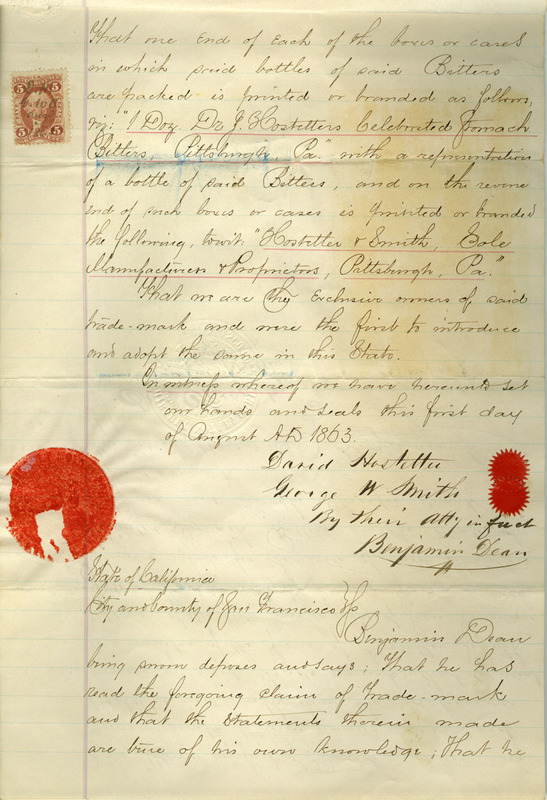 That one end of each of the boxes or cases
in which said bottles of said Bitters
are packed is printed or branded as follows,
viz: "1 Doz. Dr J. Hostetters Celebrated Stomach
Bitters, Pittsburgh, Pa." with a representation
of a bottle of said Bitters, and on the reverse
end of such boxes or cases is printed or branded
the following, towit: "Hostetter & Smith, Sole
Manufacturers & Proprietors, Pittsburgh, Pa."
That we are the exclusive owners of said
trade-mark and were the first to introduce
and adopt the same in this State.
In witness whereof we have hereunto set
our hands and seals this first day
of August A.D. 1863.
David Hostetter
George W Smith
By their Atty in fact
Benjamin Dean
State of California
City and County of San Francisco ss
Benjamin Dean
being sworn deposes and says; That he has
read the foregoing claim of trade-mark
and that the statements therein made
are true of his own knowledge; That he
5 5
5 5